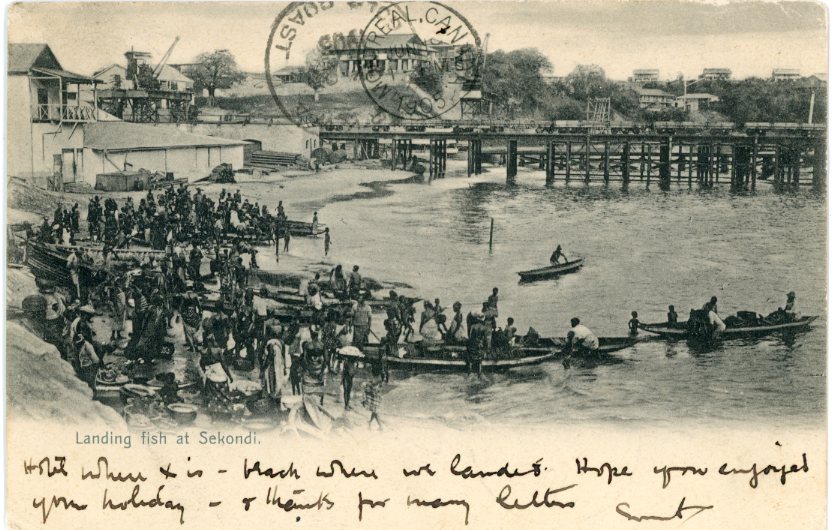 GOLD COAST
MONTREAL, CAN
Landing fish at Sekondi.
Hotel where x is - beach where we landed. Hope you enjoyed
your holiday - & thanks for many letters